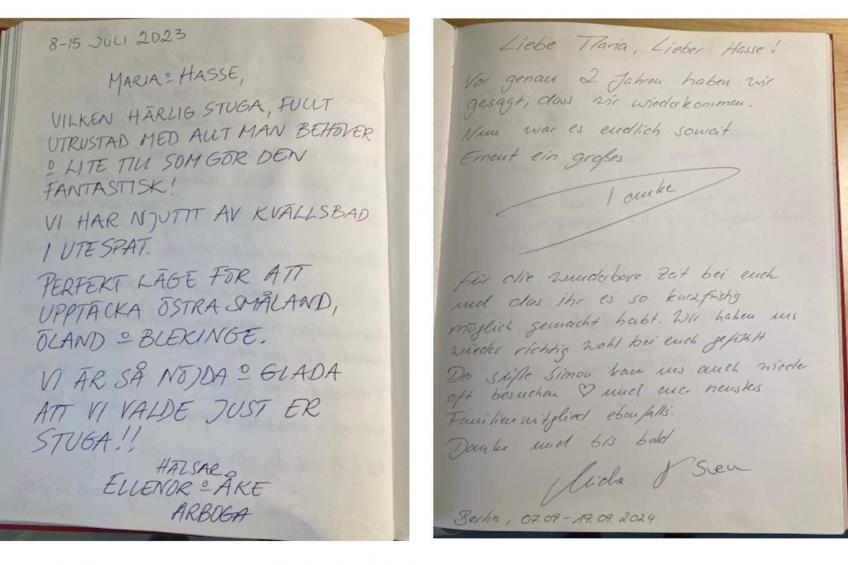 8-15 JULI 2023
MARIA o HASSE,
VILKEN HÄRLIG STUGA, FULLT
UTRUSTAD MED ALLT MAN BEHÖVER
o LITE TILL SOM GÖR DEN
FANTASTISK!
VI HAR NJUTIT AV KVÄLLSBAD
I UTESPAT.
PERFEKT LÄGE FÖR ATT
UPPTÄCKA ÖSTRA SMÅLAND,
ÖLAND o BLEKINGE.
VI ÄR SÅ NÖJDA o GLADA
ATT VI VALDE JUST ER
STUGA!!
HÄLSAR
ELLENOR o ÅKE
ARBOGA
Liebe Maria, Lieber Hasse!
Vor genau 2 Jahren haben wir
gesagt, dass wir wiederkommen.
Nun war es endlich soweit
Erneut ein großes
Danke
Für die wunderbare Zeit bei euch
und das ihr es so kurzfristig
möglich gemacht habt. Wir haben uns
wieder richtig wohl bei euch gefühlt
Der süße Simon kam uns auch wieder
oft besuchen ♡ und euer neustes
Familienmitglied ebenfalls.
Danke und bis bald
Sven
Berlin, 07.09-19.09.2024